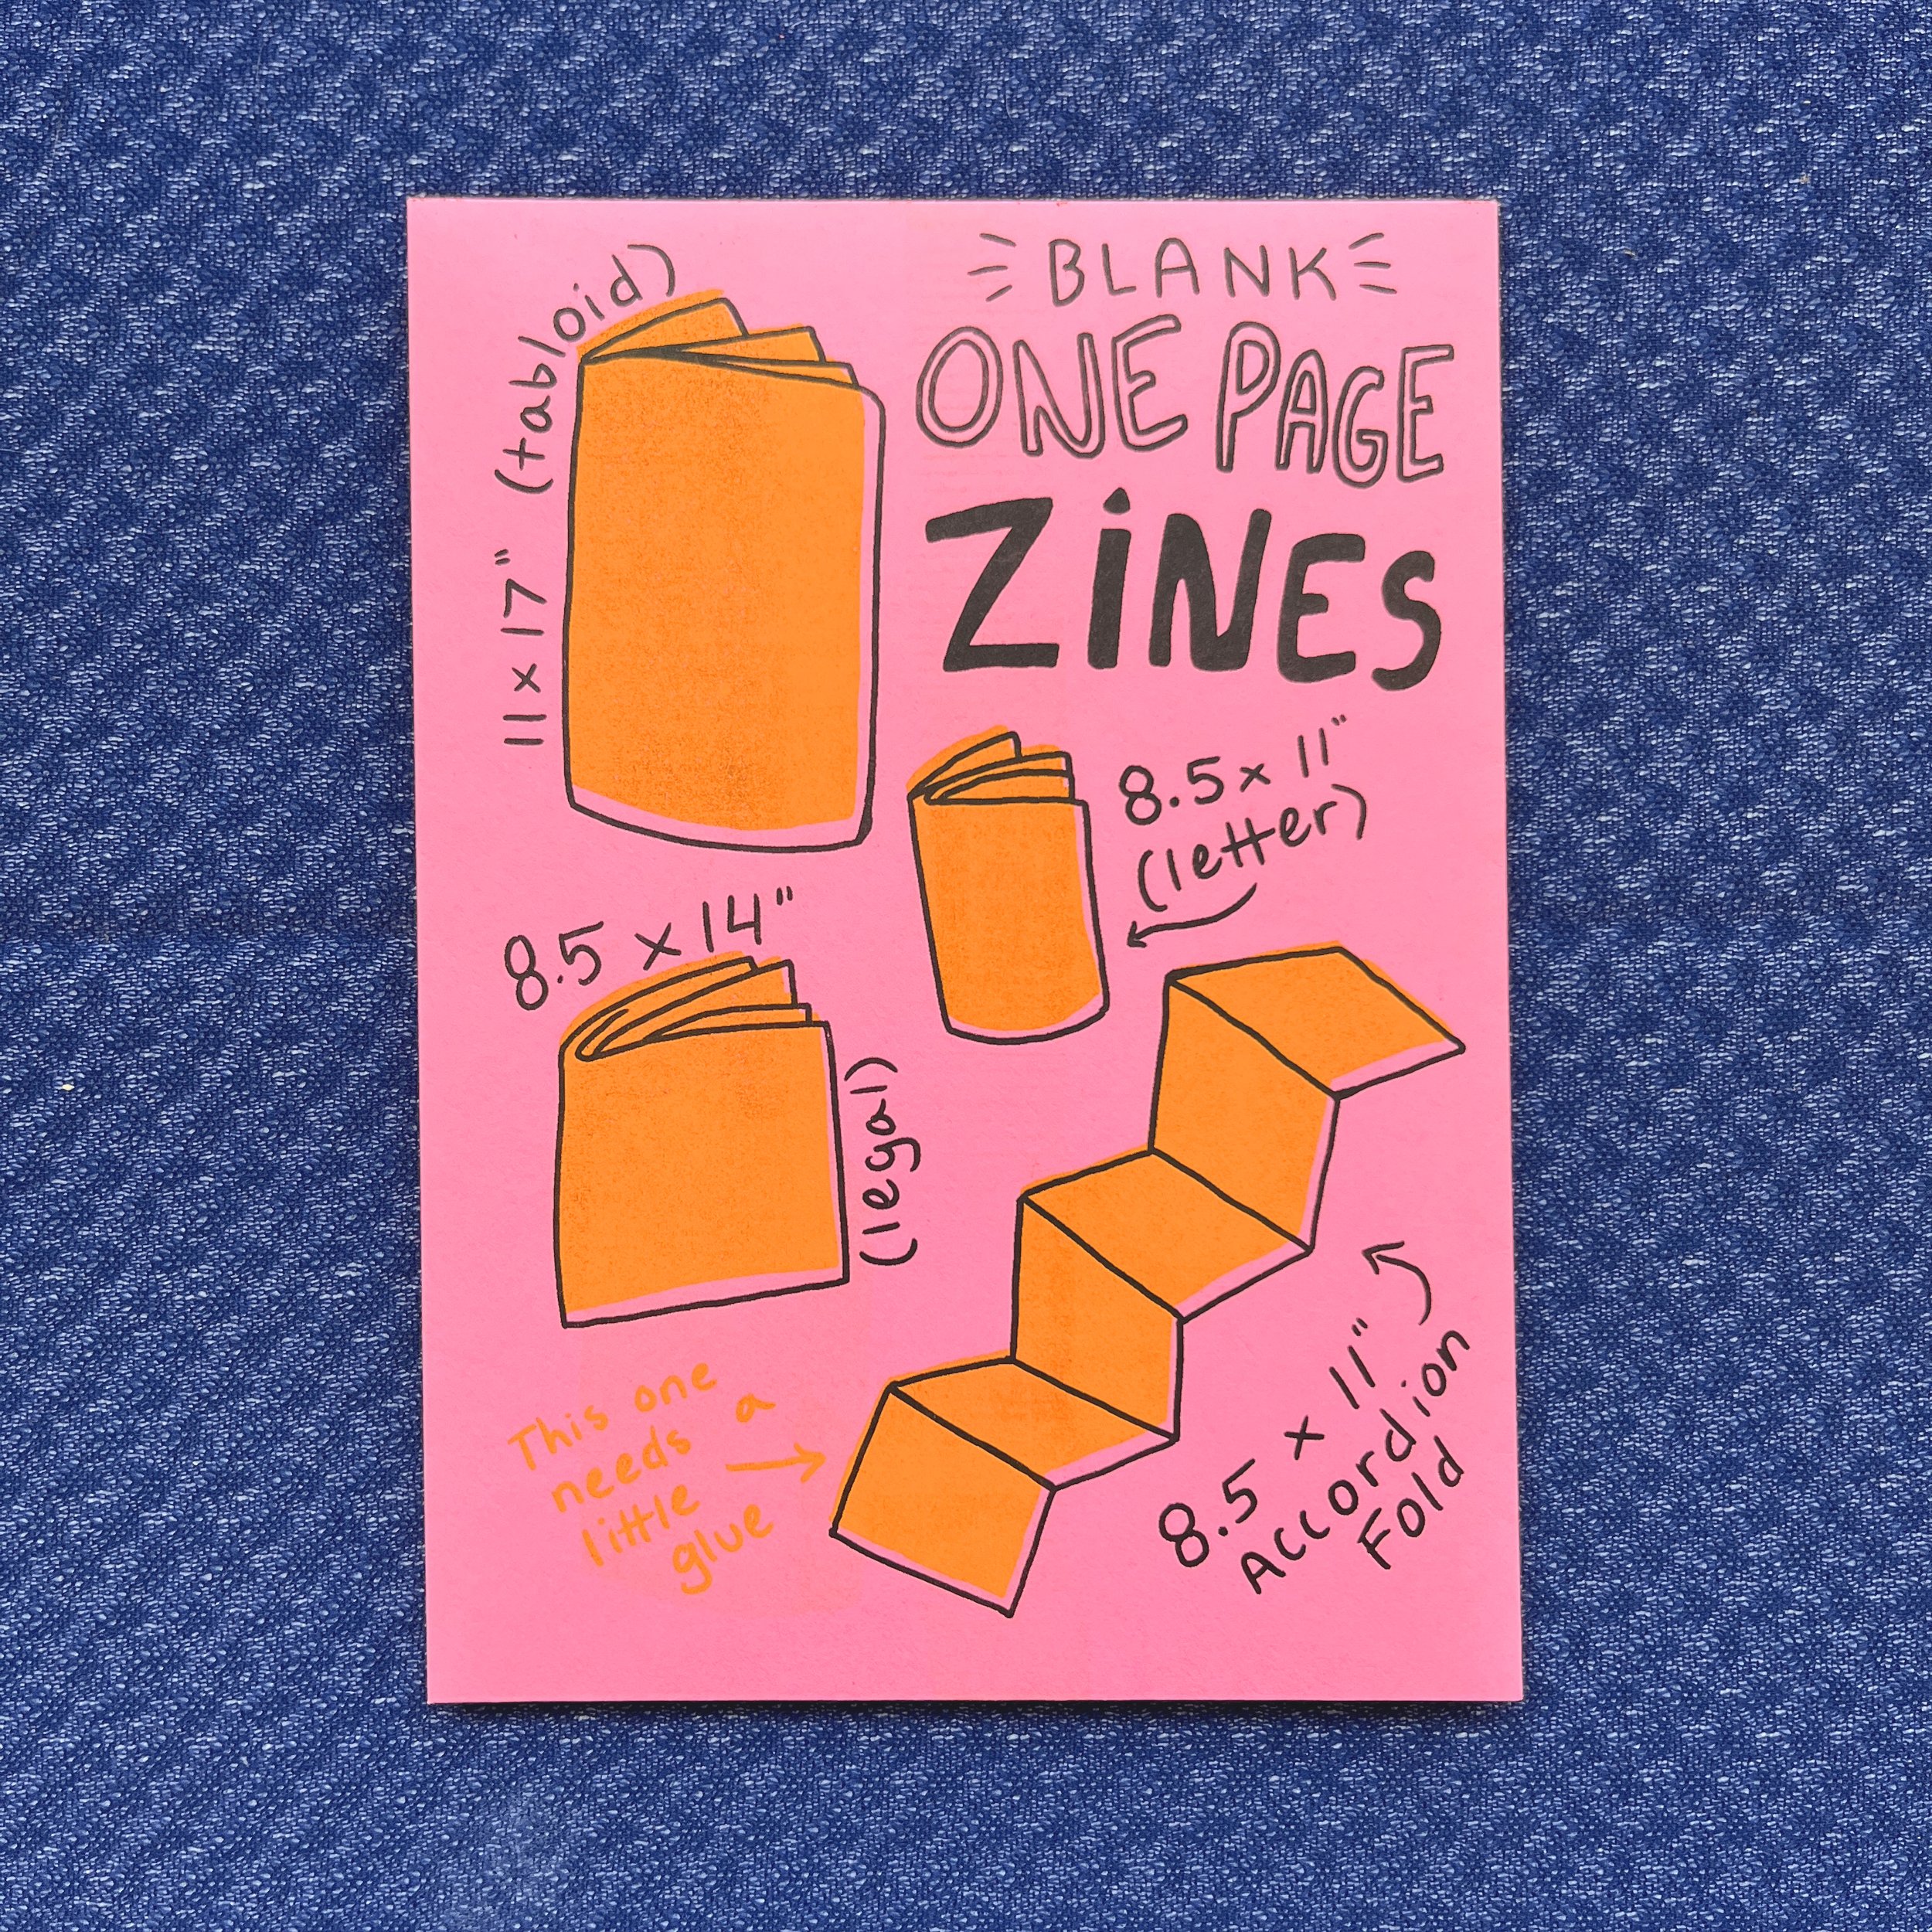 BLANK
ONE PAGE
ZiNES
11 x 17" (tabloid)
8.5 x 11"
(letter)
8.5 x 14"
(legal)
This one
needs a
little
glue
8.5 x 11"
Accordion
Fold